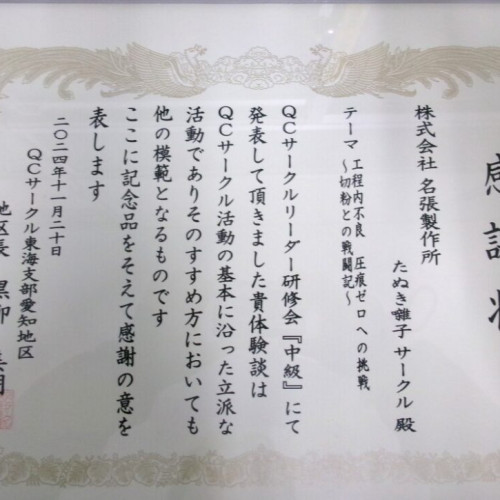 感謝状
株式会社 名張製作所
たぬき囃子サークル 殿
テーマ 工程内不良 圧痕ゼロへの挑戦
～切粉との戦闘記～
QCサークルリーダー研修会『中級』にて
発表して頂きました貴体験談は
QCサークル活動の基本に沿った立派な
活動でありそのすすめ方においても
他の模範となるものです
ここに記念品をそえて感謝の意を
表します
二〇二四年十一月二十日
QCサークル東海支部愛知地区
地区長 黒柳